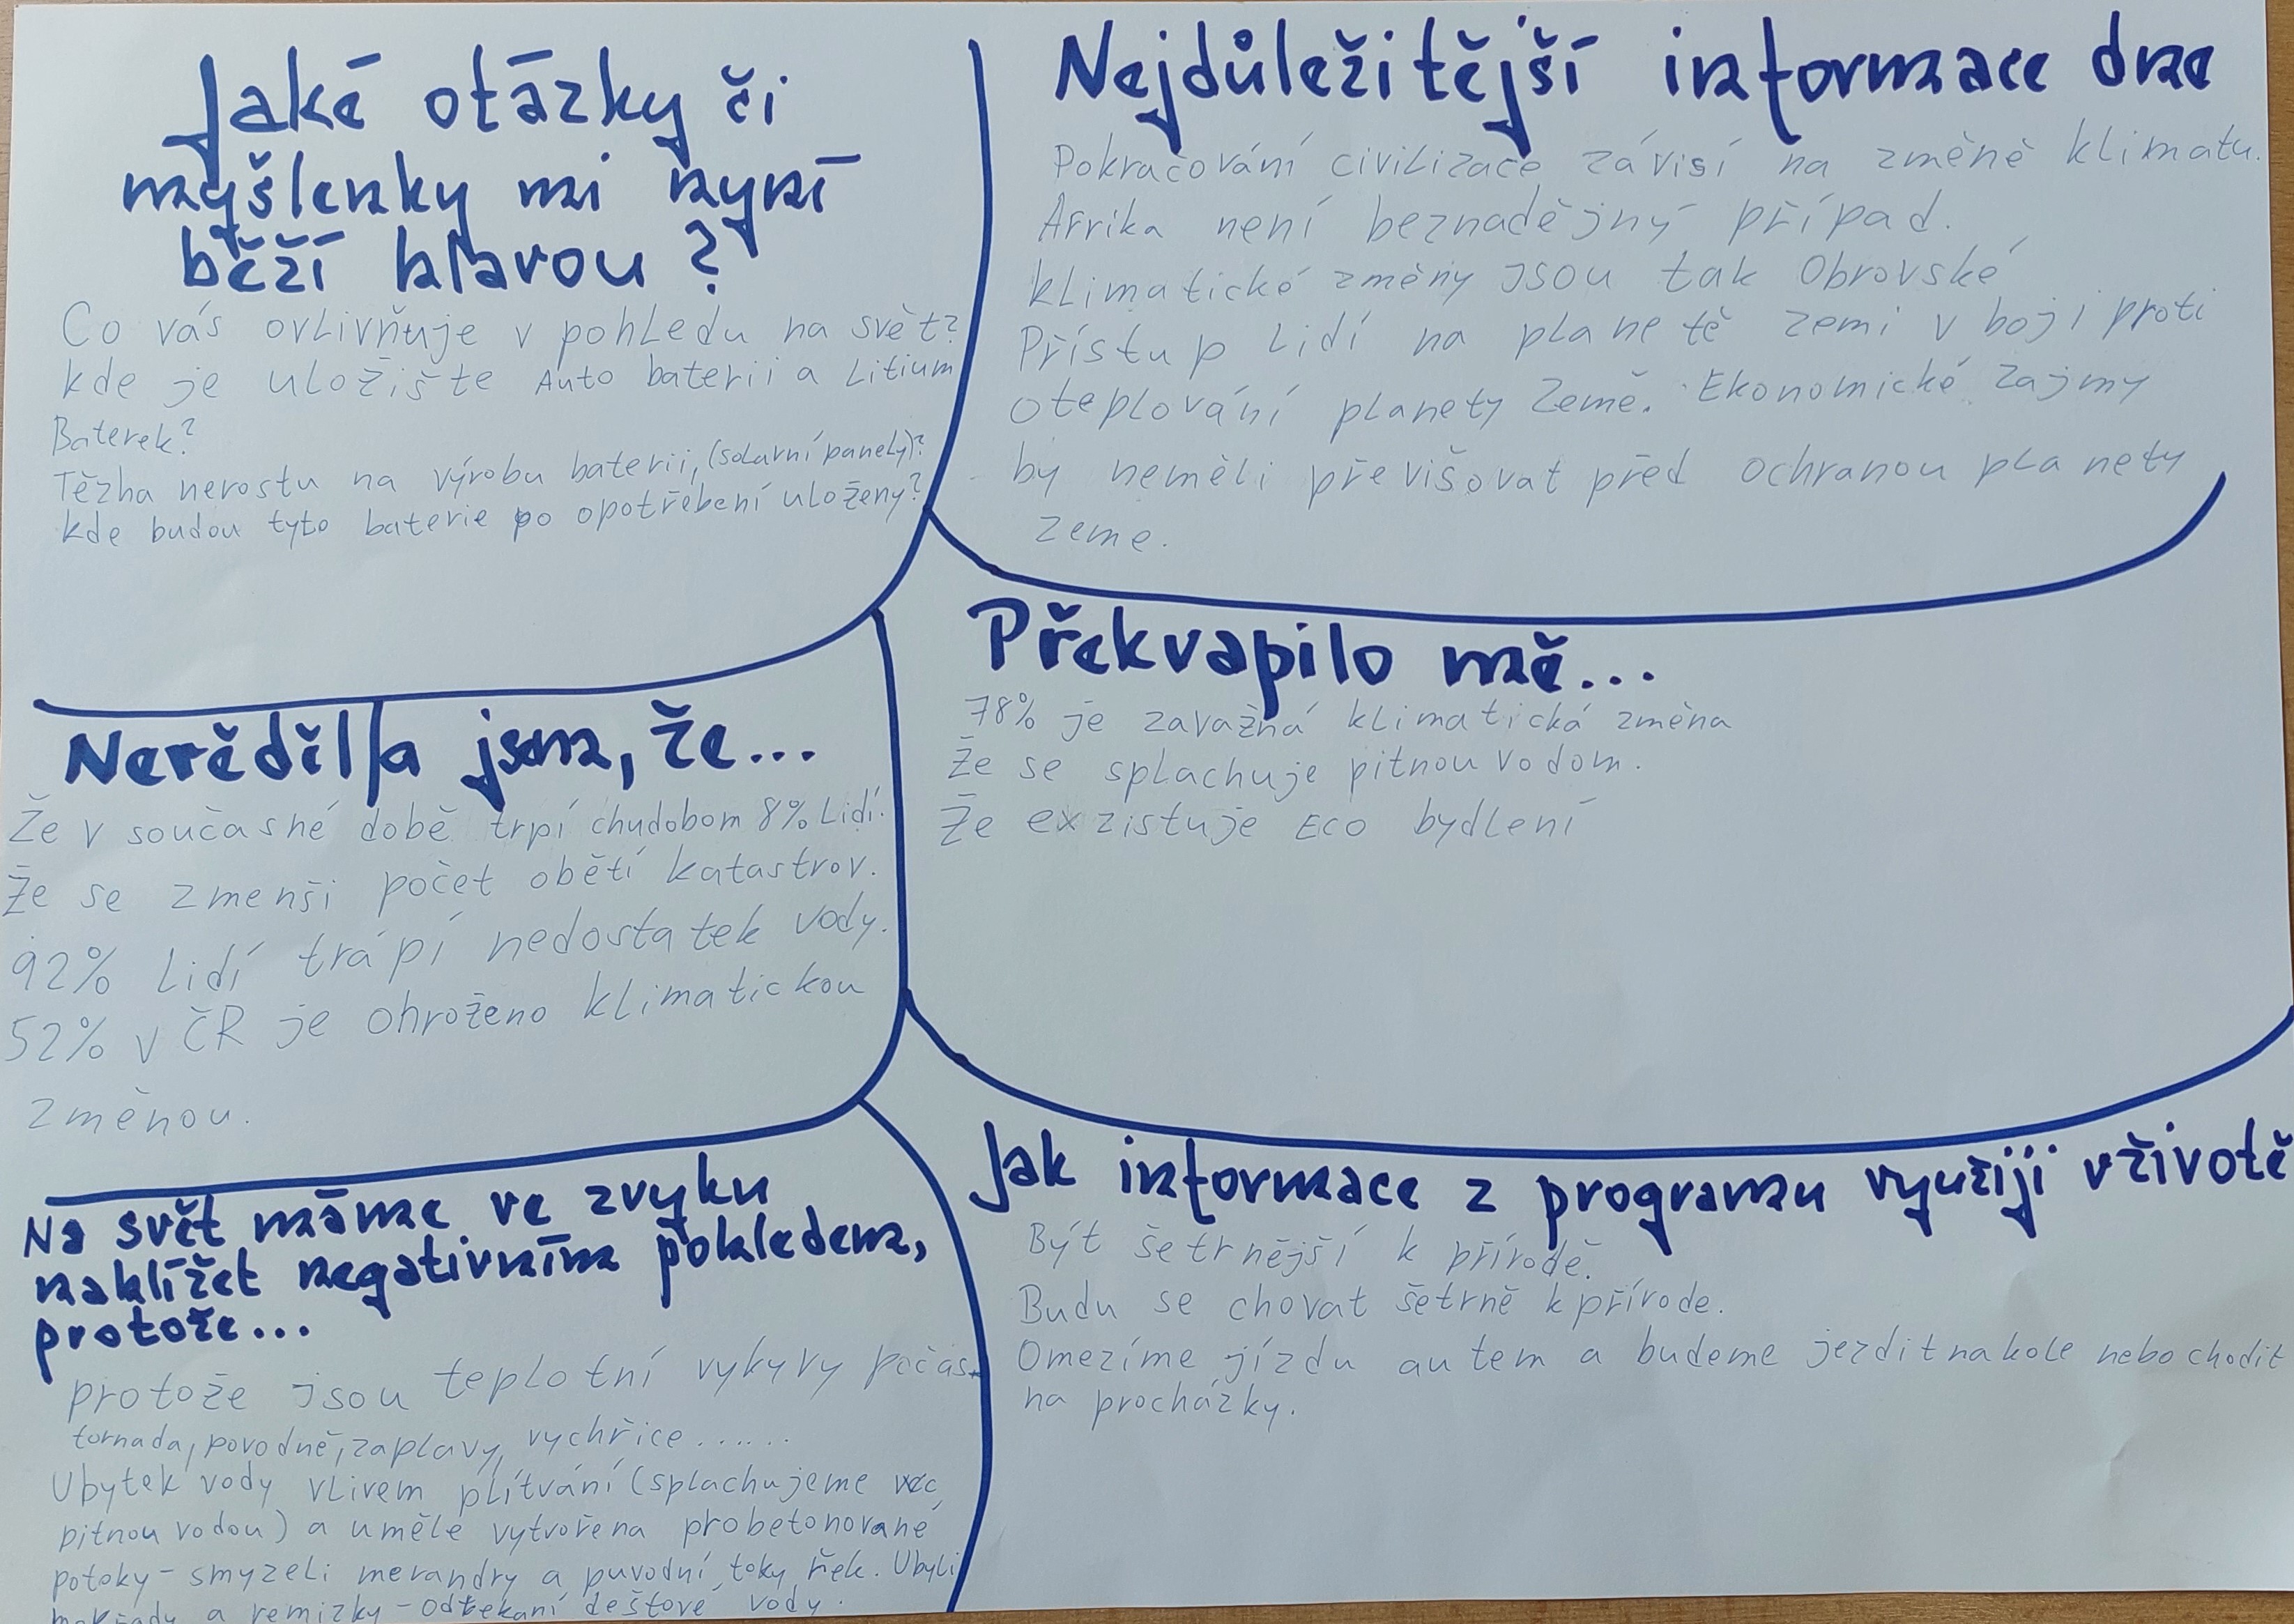 Jaké otázky či
myšlenky mi nyní
běží hlavou?
Co vás ovlivňuje v pohledu na svět?
kde je uložište Auto baterii a Litium
Baterek?
Těžba nerostu na výrobu baterii, (solarní panely)?
kde budou tyto baterie po opotřebení uloženy?
Nejdůležitější informace dne
Pokračování civilizace závisí na změně klimatu.
Afrika není beznadějný případ.
klimatické změny jsou tak Obrovské
Přístup lidí na planetě zemi v boji proti
oteplování planety Země. Ekonomické zajmy
by neměli převišovat před ochranou planety
zeme.
Nevěděl/a jsem, že...
Že v současné době trpí chudobom 8% Lidí.
Že se zmenši počet obětí katastrov.
92% Lidí trápí nedostatek vody.
52% v ČR je ohroženo klimatickou
změnou.
Překvapilo mě...
78% je zavažná klimatická změna
Že se splachuje pitnou vodom.
Že exzistuje Eco bydlení
Na svět máme ve zvyku
nahlížet negativním pohledem,
protože...
protože jsou teplotní vykyvy počas
tornada, povodně, zaplavy, vychřice......
Ubytek vody vlivem plítvání (splachujeme wc
pitnou vodou) a uměle vytvořena probetonované
potoky - smyzeli merandry a puvodní toky řek. Ubyli
a remizky - odtekaní deštové vody.
Jak informace z programu využiji v životě
Být šetrnější k přírodě.
Budu se chovat šetrně k přírode.
Omezíme jízdu autem a budeme jezdit na kole nebo chodit
na procházky.